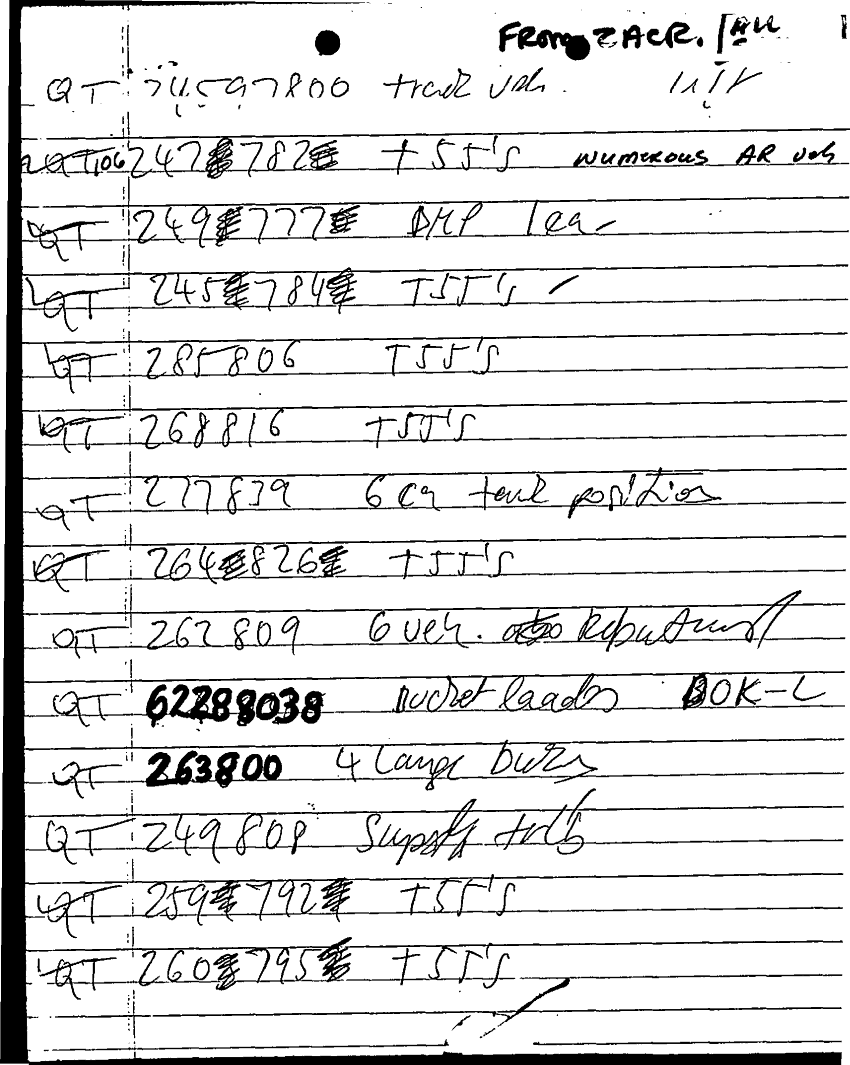 FROM 2ACR.
QT 800 track veh.
QT 106 247 782 T55's NUMEROUS AR veh
QT 249 777 BMP
QT 245 784 T55's
QT 285806 T55's
QT 268816 T55's
QT 277839 6 tank position
QT 264 826 T55's
QT 262809 6 veh.
QT 62288038 bucket loader BOK-L
QT 263800 4 Large
QT 249808 Supply
QT 259 792 T55's
QT 260 795 T55's